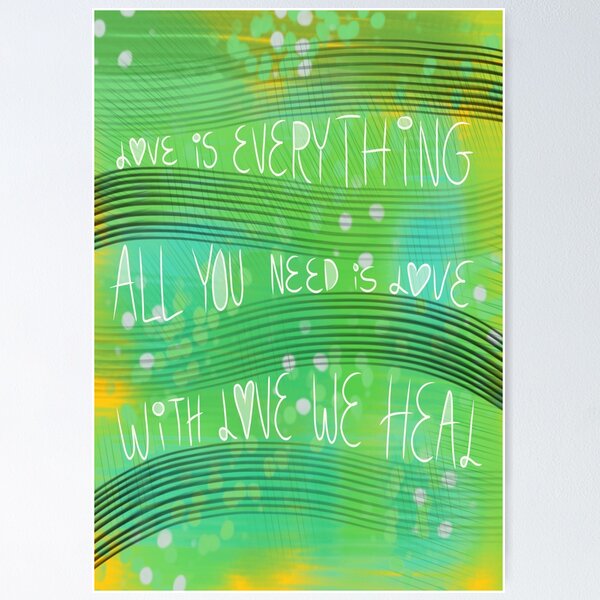 LOVE is EVERYTHING
ALL YOU NEED is LOVE
WiTH LOVE WE HEAL